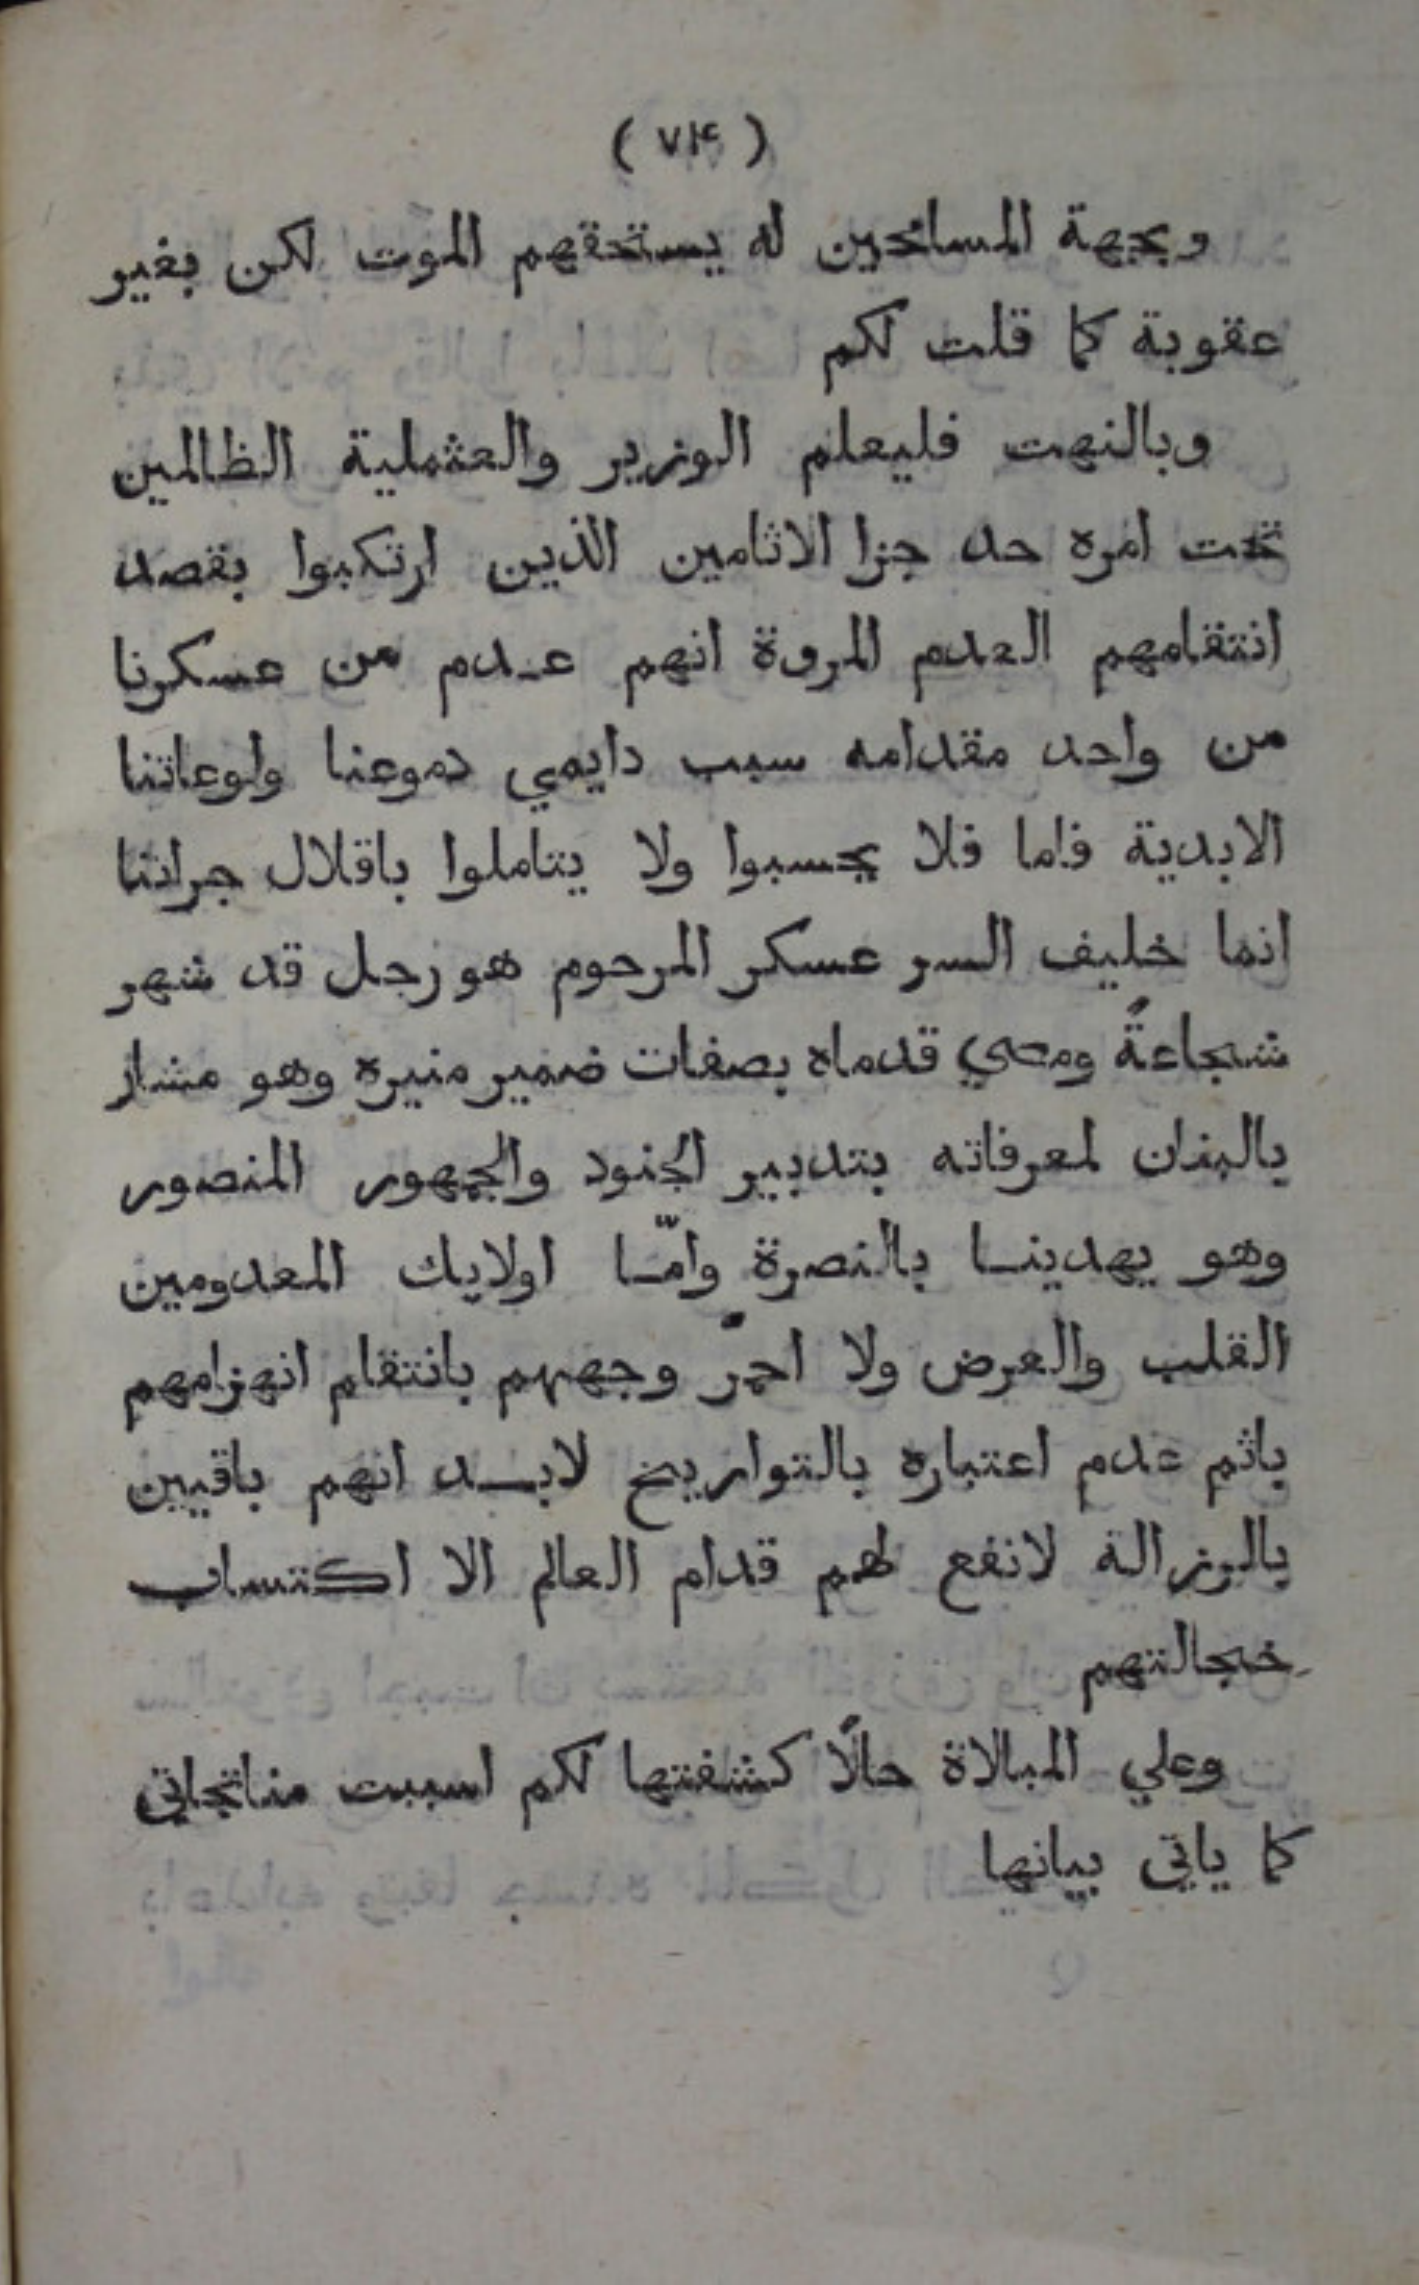 ( ٧١٤ )
وبجهة المسائحين له يستحقهم الموت لكن بغير
عقوبة كما قلت لكم
وبالنهت فليعلم الوزير والعثملية الظالمين
تحت امره حد جزا الاثامين الذين ارتكبوا بقصد
انتقامهم العدم المروة انهم عدم من عسكرنا
من واحد مقدامه سبب دايمي دموعنا ولوعاتنا
الابدية فاما فلا يحسبوا ولا يتاملوا باقلال جراتنا
انما خليف السر عسكر المرحوم هو رجل قد شهر
شجاعةً ومضي قدماه بصفات ضمير منيره وهو مشار
بالبنان لمعرفاته بتدبير الجنود والجمهور المنصور
وهو يهدينا بالنصرة وامّا اولايك المعدومين
القلب والعرض ولا احمرّ وجههم بانتقام انهزامهم
باثم عدم اعتباره بالتواريخ لابد انهم باقيين
بالرزالة لانفع لهم قدام العالم الا اكتساب
خجالتهم
وعلي المبالاة حالًا كشفتها لكم اسببت مناتجاتي
كما ياتي بيانها